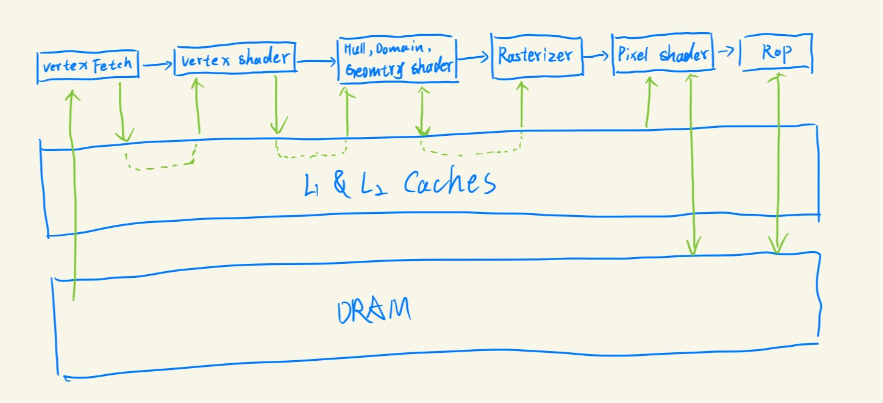 vertex Fetch
vertex shader
Hull, Domain,
Geomtry shader
Rasterizer
Pixel shader
Rop
L1 & L2 Caches
DRAM